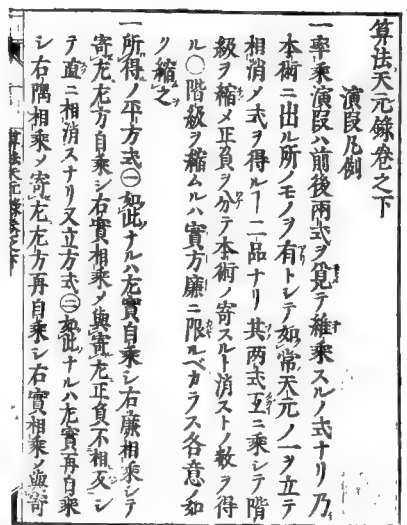 算法天元録巻之下
演段凡例
一率乗演段ハ前後両式ヲ覓テ維乗スルノ式ナリ乃
本術ニ出ル所ノモノヲ有トシテ如常天元ノ一ヲ立テ
相消ノ式ヲ得ルヿ二品ナリ其両式互ニ乗シテ階
級ヲ縮メ正負ヲ分テ本術ノ寄スルト消ストノ数ヲ得
ル〇階級ヲ縮ムルハ實方廉ニ限ルベカラス各意ノ如
ク縮之
一所得ノ平方式㊀如此ナルハ左實自乗シ右廉相乗シテ
寄左左方自乗シ右實相乗メ與寄左正負不相反シ
テ直ニ相消スナリ又立方式㊁如此ナルハ左實再自乗
シ右隅相乗メ寄左左方再自乗シ右實相乗メ與寄